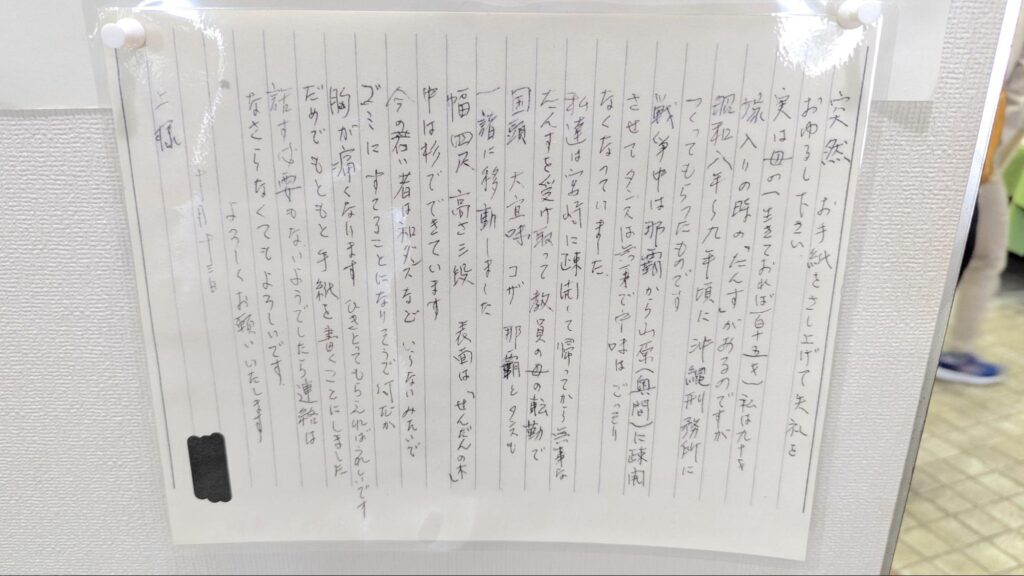 突然 お手紙をさし上げて失礼を
おゆるし下さい
実は母の(生きておれば百十五才)私は九十才
嫁入りの時の「たんす」があるのですが
昭和八年〜九年頃に沖縄刑務所に
つくってもらったものです
戦争中は那覇から山原(奥間)に疎開
させてタンスは無事で中味はごっそり
なくなっていました
私達は宮崎に疎開して帰ってから無事な
たんすを受け取って教員の母の転勤で
国頭 大宜味 コザ 那覇とタンスも
一諸に移動しました
幅四尺 高さ三段 表面は「せんだんの木」
中は杉でできています
今の若い者は和ダンスなど いらないみたいで
ゴミにすてることになりそうで何だか
胸が痛くなります ひきとってもらえればうれしいです
だめでもともと手紙を書くことにしました
話す必要もないようでしたら連絡は
なさらなくてもよろしいです
よろしくお願いいたします
十月十三日
上様